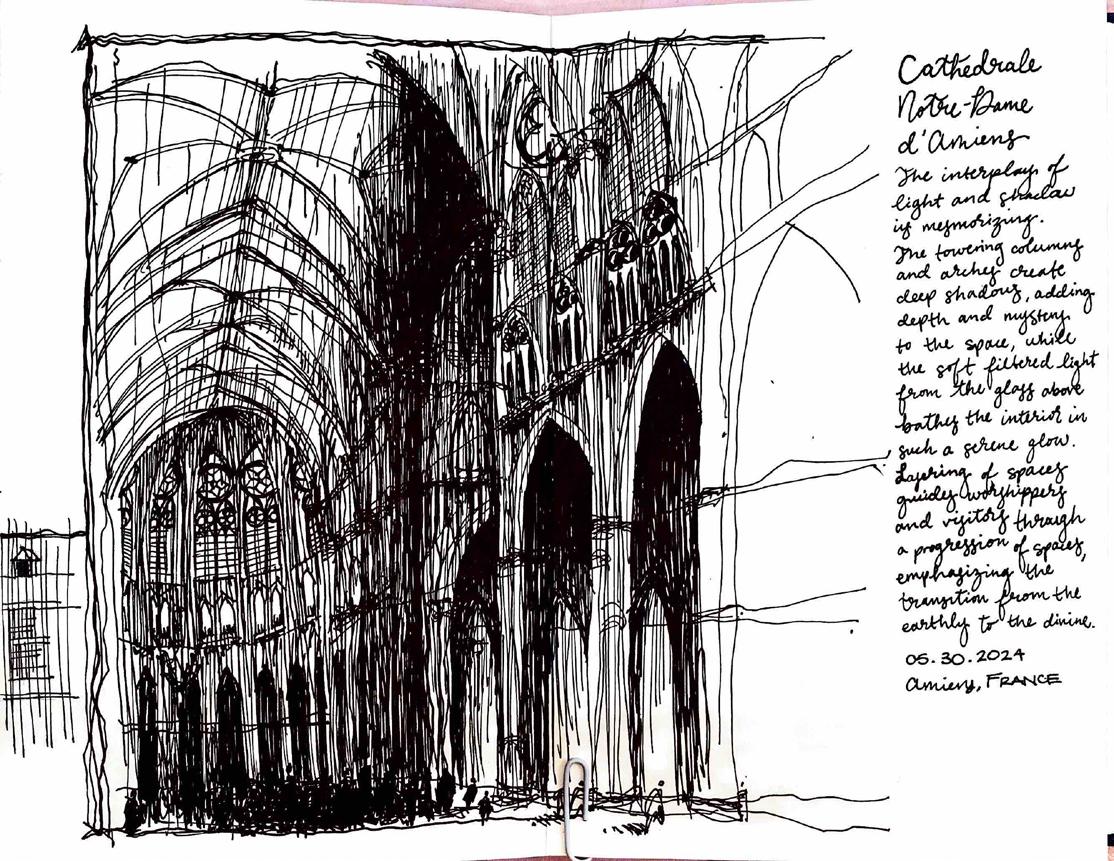 Cathedrale
Notre-Dame
d'Amiens
The interplay of
light and shadow
is mesmorizing.
The towering columns
and arches create
deep shadows, adding
depth and mystery
to the space, while
the soft filtered light
from the glass above
bathes the interior in
such a serene glow.
Layering of spaces
guides worshippers
and visitors through
a progression of spaces,
emphasizing the
transition from the
earthly to the divine.
05.30.2024
Amiens, FRANCE